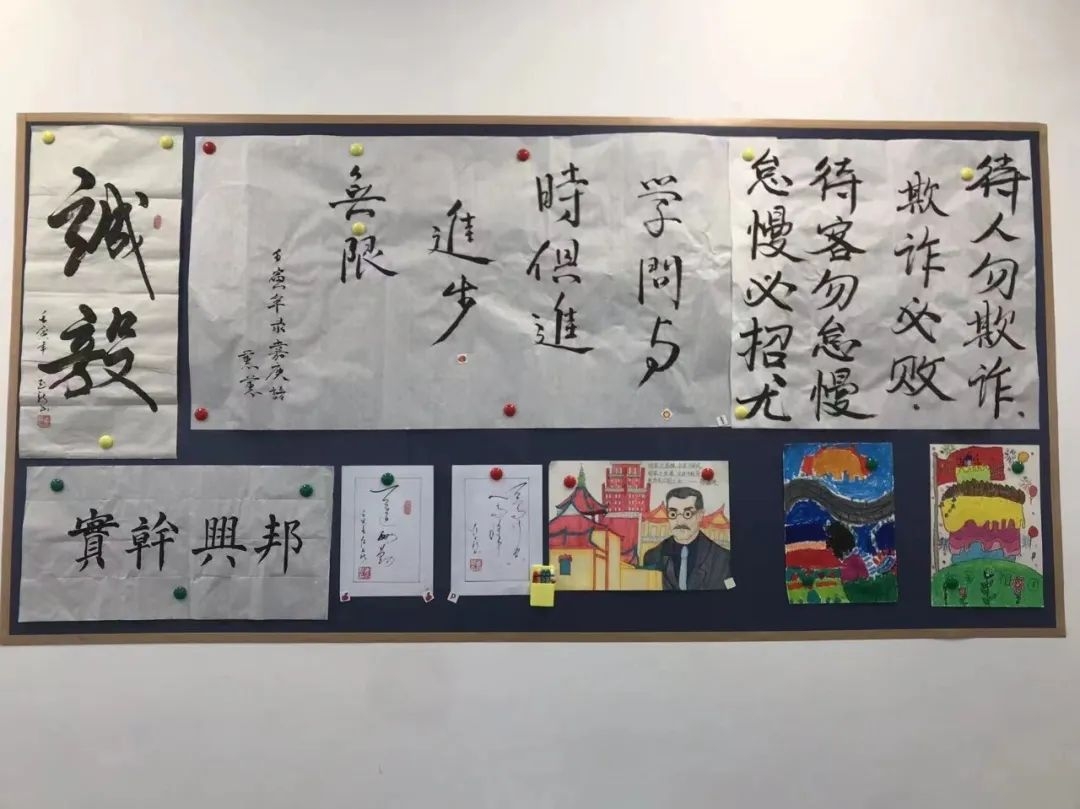 誠毅
壬寅年
学問与
時俱進
進步
無限
壬寅年录嘉庚語
待人勿欺诈、
欺诈必败.
待客勿怠慢
怠慢必招尤
實幹興邦